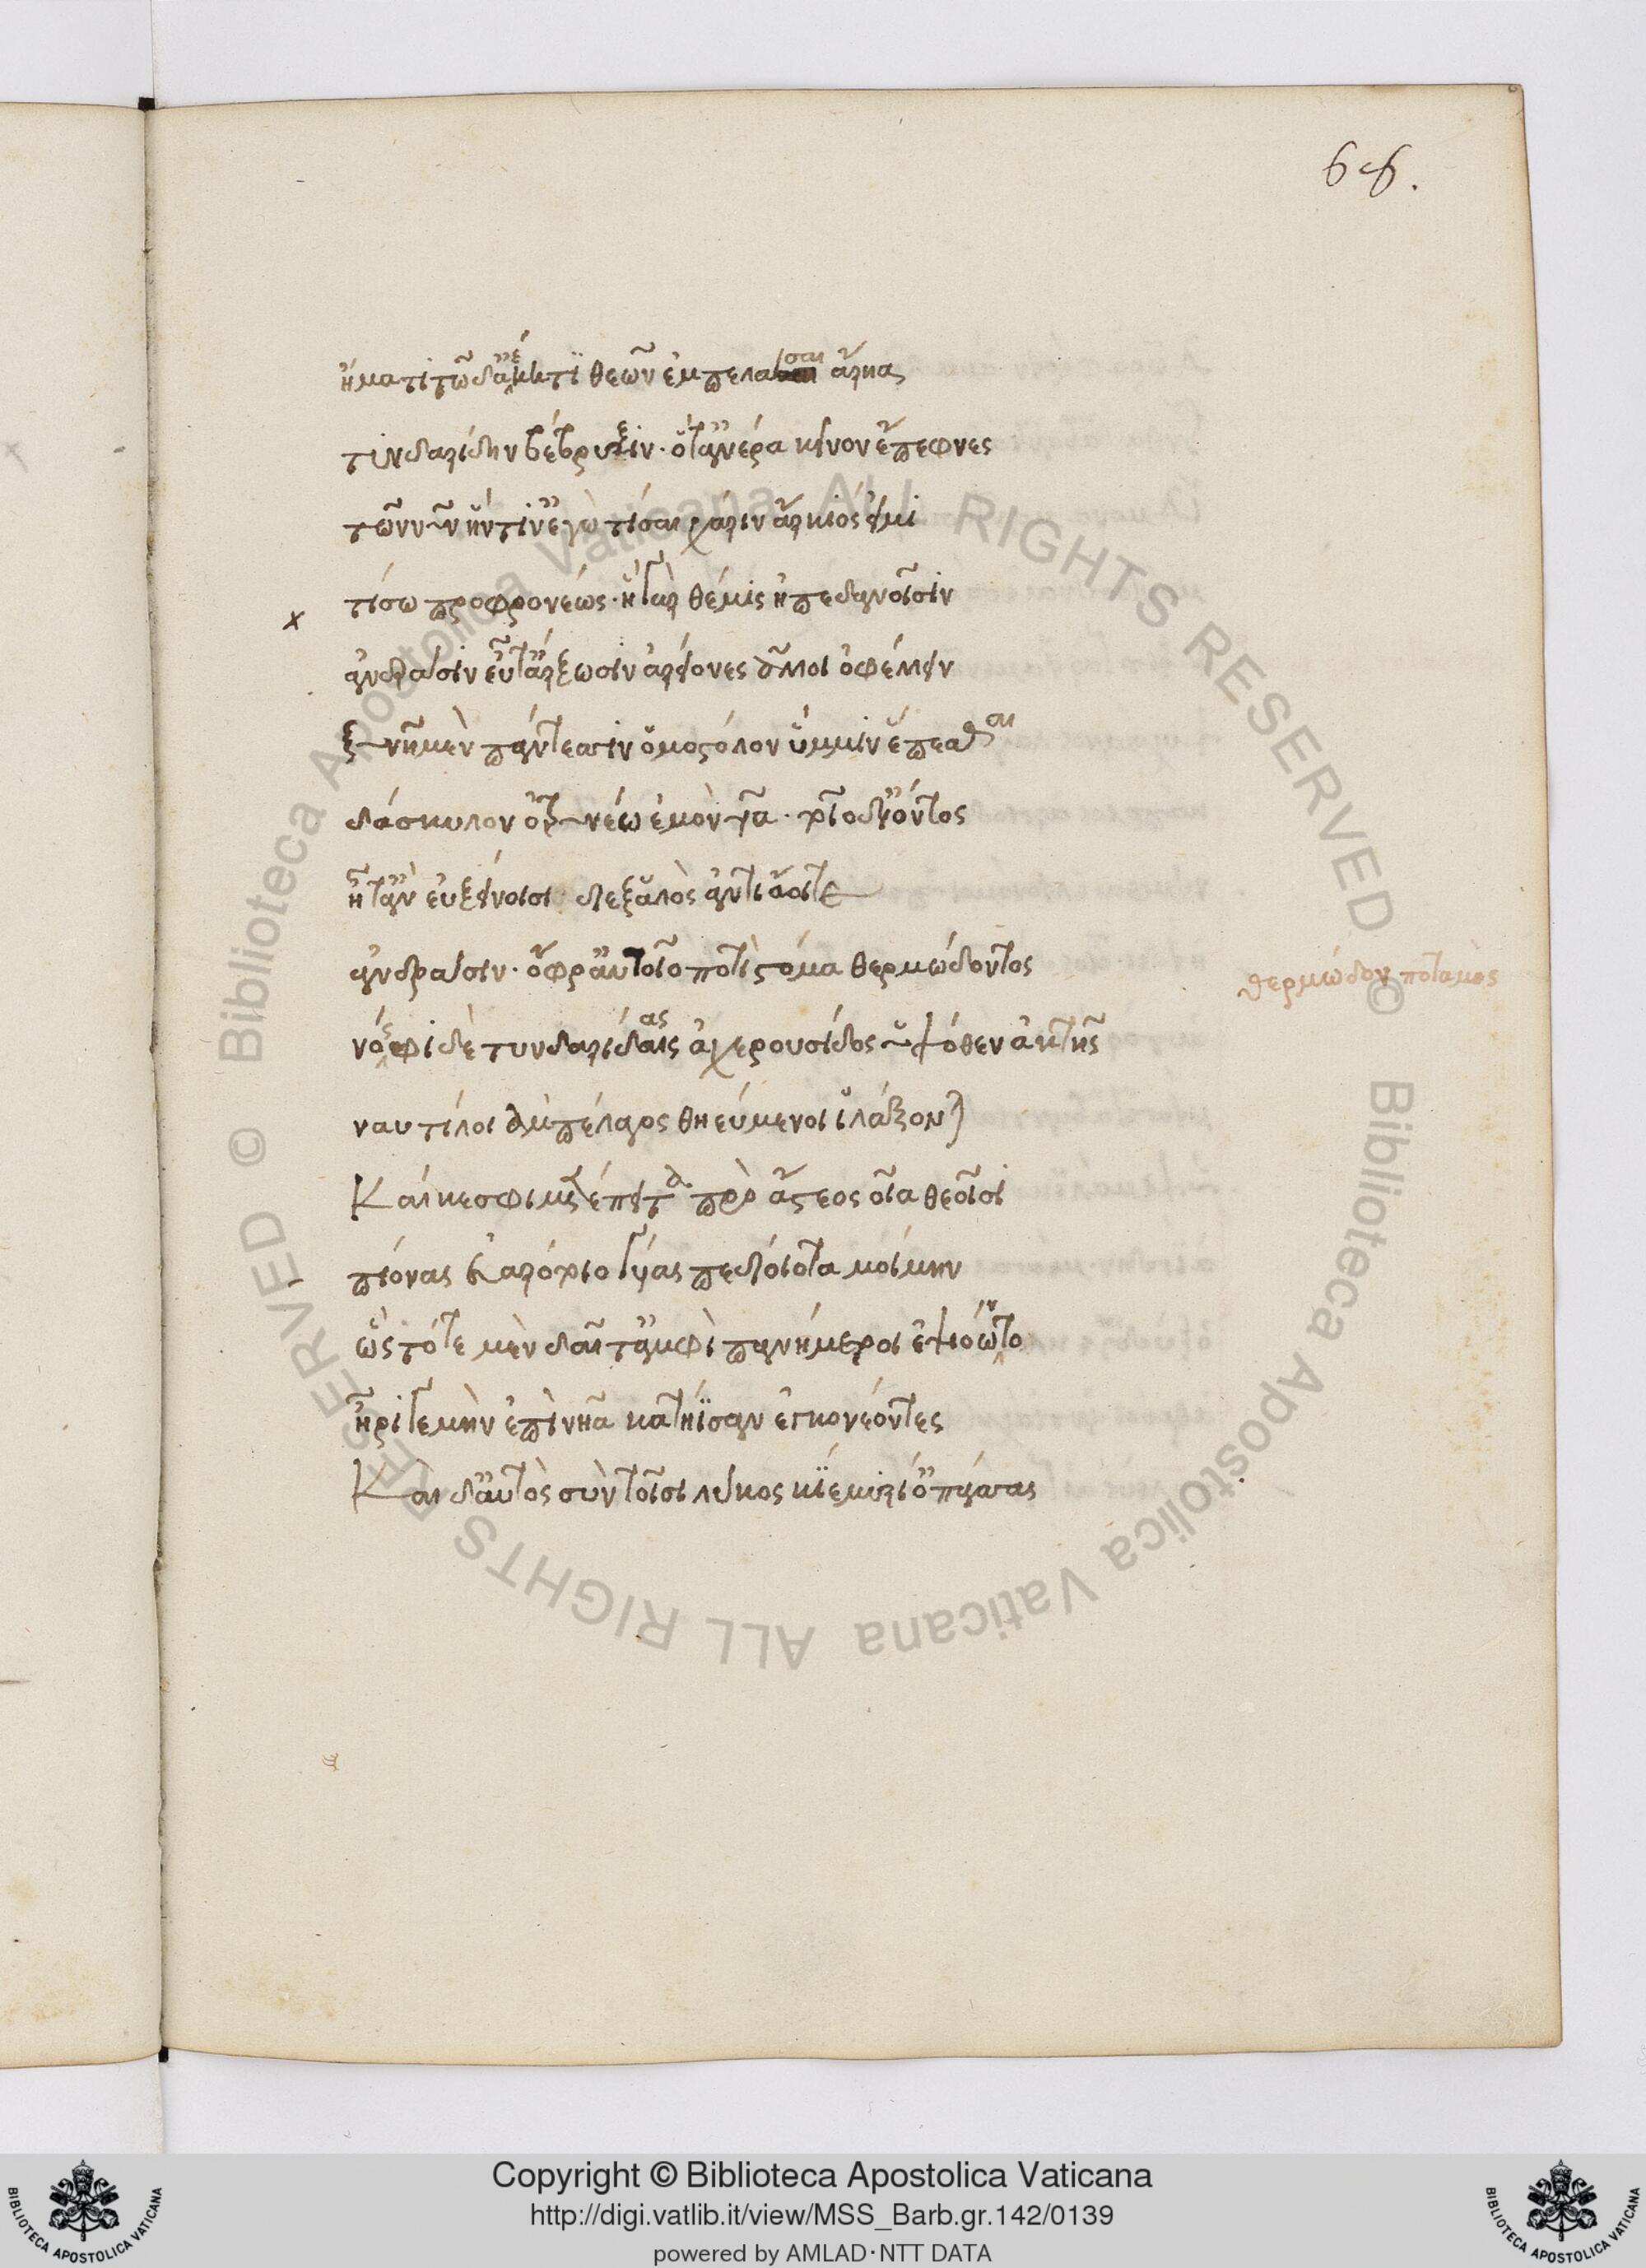 66.
ἤματι τῶ δ' ἀέκητι θεῶν ἐμπελάσσαι ἄρηας
τινδαρίδην βέβρυξιν· ὅτ' ἀνέρα κεῖνον ἔπεφνες
τῶν νῦν ἥντιν' ἐγὼ τίσαι χάριν ἄρκιός εἰμι
τίσω προφρονέως· ἥ γὰρ θέμις ἠπεδανοῖσιν
ἀνδράσιν εὖτ' ἄρξωσιν ἀρείονες ἄλλοι ὀφέλλειν
ξυνῆ μὲν πάντεσσιν ὁμόστολον ὔμμιν ἕπεσθαι
δάσκυλον ὀτρυνέω ἐμὸν υἷα· τοῖο δ' ἰόντος
ἦ τ' ἂν ἐυξείνοισι διεξ ἁλὸς ἀντιάοιτε
ἀνδράσιν· ὄφρ' αὐτοῖο ποτὶ στόμα θερμώδοντος
θερμώδον ποταμὸς
νόσφι δὲ τυνδαρίδαις ας ἀχερουσίδος ὑψόθεν ἀκτῆς
ναυτίλοι ἀμπέλαγος θηεύμενοι ἱλάξονται
Καί κε σφι μετέπειτα πρὸ ἄστεος οἷα θεοῖσι
πίονας εὐαρότοιο γύας πεδίοιο ταμοίμην
ὣς τότε μὲν δαῖτ' ἀμφὶ πανήμεροι ἐψιόωντο
ἦρι γε μὴν ἐπὶ νῆα κατήϊσαν ἐγκονέοντες
Καὶ δ' αὐτὸς σὺν τοῖσι λύκος κίε μυρί' ὀπάσσας
Copyright © Biblioteca Apostolica Vaticana
http://digi.vatlib.it/view/MSS_Barb.gr.142/0139
powered by AMLAD·NTT DATA